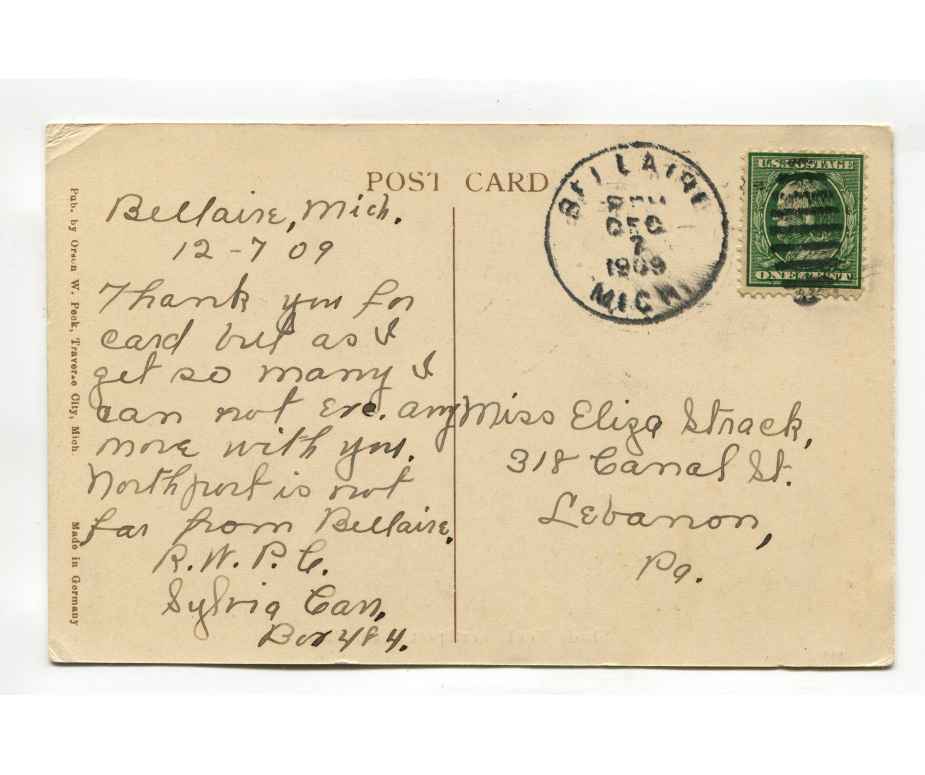 POST CARD
Bellaire, Mich.
12-7 09
Thank you for
card but as I
get so many I
can not Exc. any
more with you.
Northport is not
far from Bellaire.
R.W.P.C.
Sylvia Carr,
Box 484.
BELLAIRE
DEC
7
1909
MICH.
U.S. POSTAGE
ONE CENT
Miss Eliza Strack,
318 Canal St.
Lebanon,
Pa.
Pub. by Orson W. Peek, Traverse City, Mich.
Made in Germany